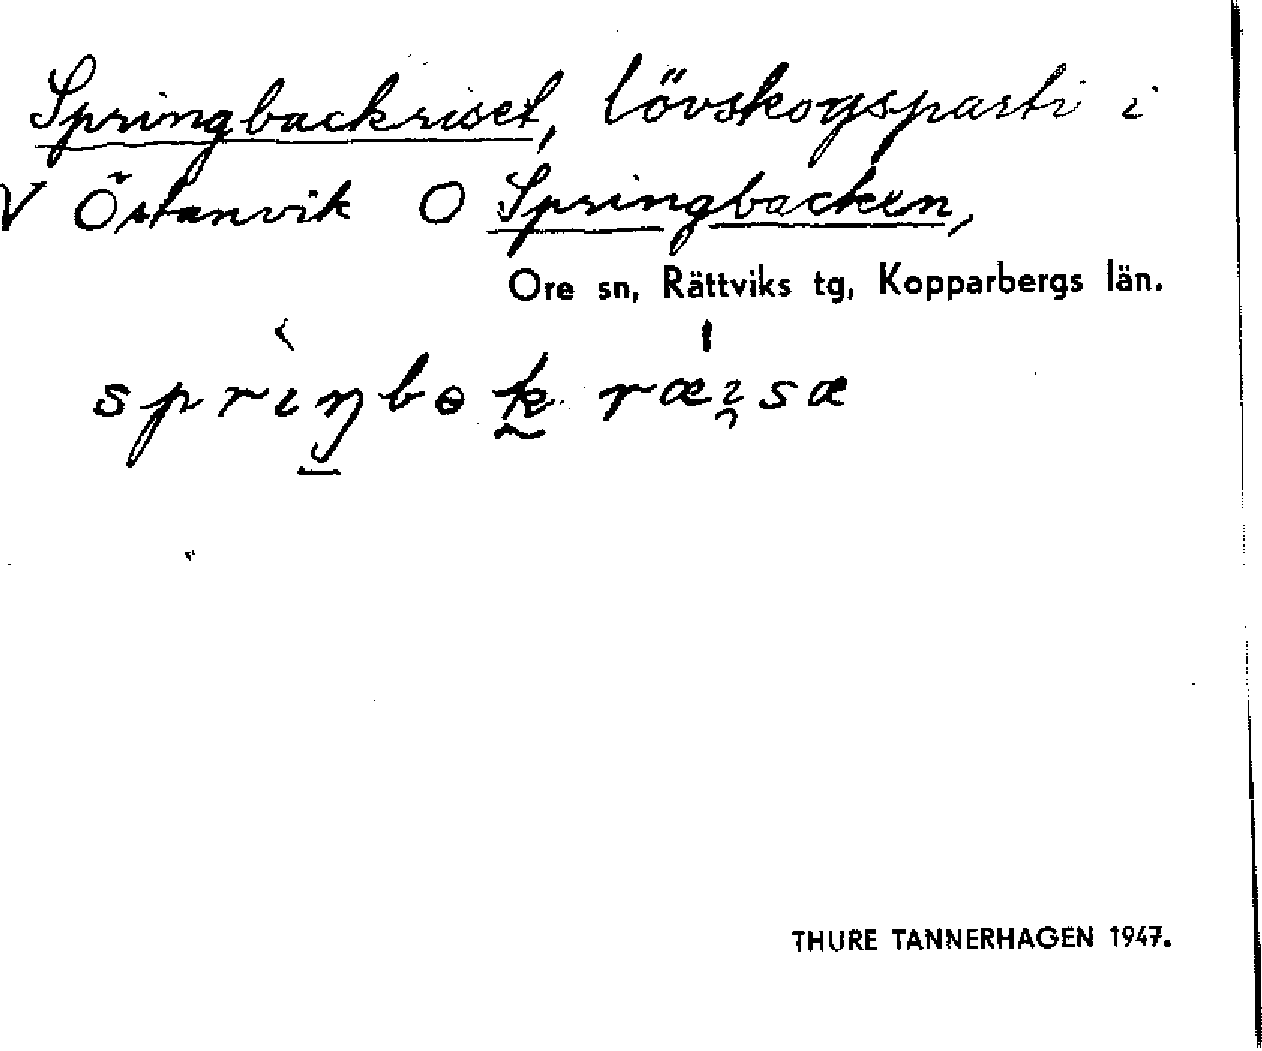 Springbackriset, lövskogsparti i
V Östanvik O Springbacken,
Ore sn, Rättviks tg, Kopparbergs län.
sprıŋbɵk ræısæ
THURE TANNERHAGEN 1947.